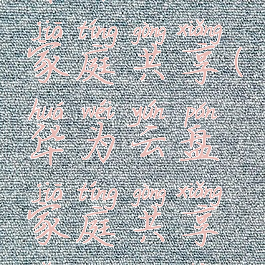 jiā tíng gòng xiǎng
家庭共享(
huá wéi yún pán
华为云盘
jiā tíng gòng xiǎng
家庭共享